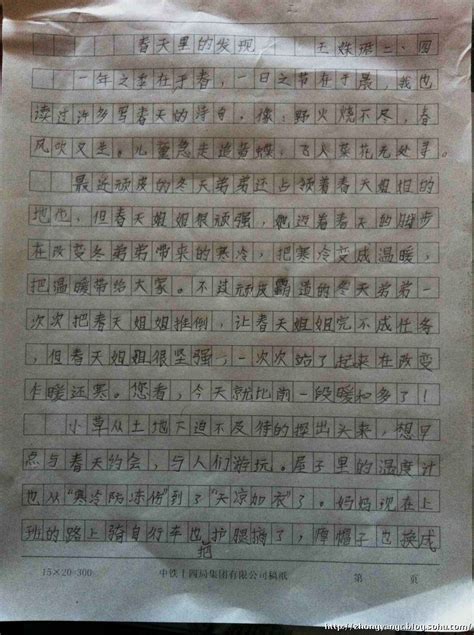 春天里的发现 王 二、四
一年之季在于春，一日之节在于晨，我也
读过许多写春天的诗句。像：野火烧不尽，春
风吹又生。儿童急走追黄蝶，飞入菜花无处寻。
最近顽皮的冬天弟弟还占领着春天姐姐的
地也，但春天姐姐很顽强，她迎着春天的脚步
在改变冬弟弟带来的寒冷，把寒冷变成温暖，
把温暖带给大家。不过顽皮霸道的冬天弟弟一
次次把春天姐姐推倒，让春天姐姐完不成任务
，但春天姐姐很坚强，一次次站了起来在改变
乍暖还寒。您看，今天就比前一段暖和多了！
小草从土地下迫不及待的探出头来，想早
点与春天约会，与人们游玩。屋子里的温度计
也从“寒冷防冻伤”到了“天凉加衣”了。妈妈现在上
班的路上骑自行车也把护腿摘了，厚帽子也换成
15×20=300 中铁十四局集团有限公司稿纸 第 页
http://zhongyangt.blog.sohu.com/